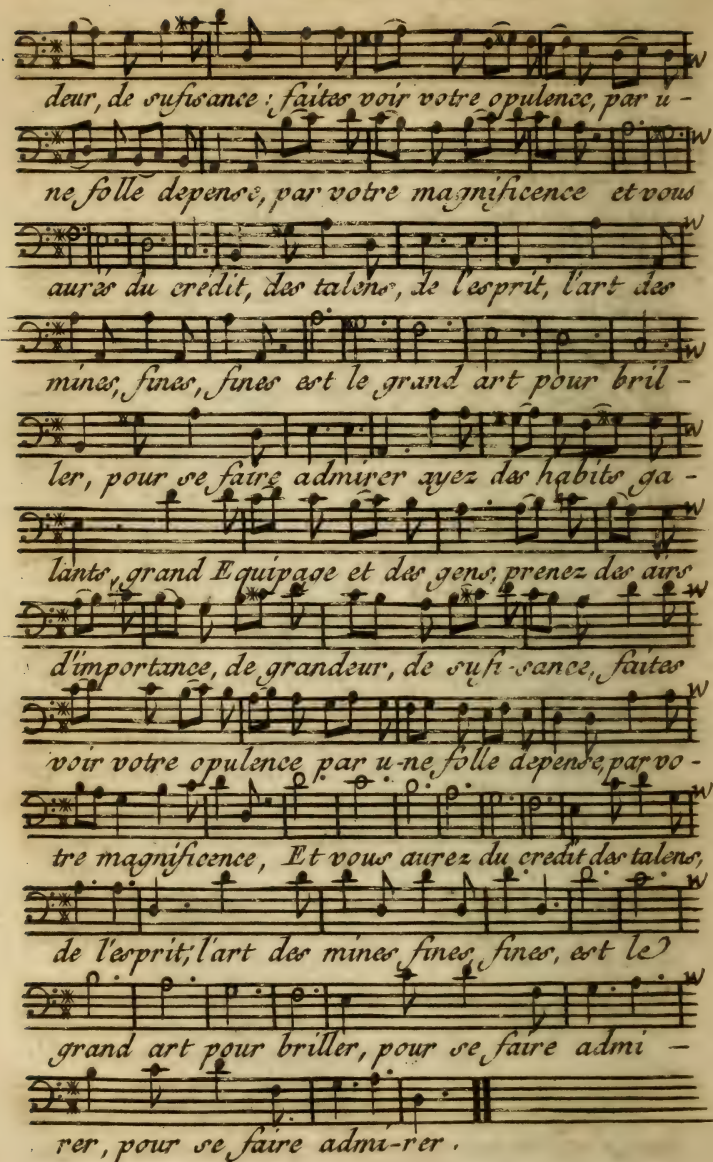 deur, de sufisance : faites voir votre opulence, par u -
ne folle depense, par votre magnificence et vous
aurés du crédit, des talens, de l'esprit, l'art des
mines, fines, fines est le grand art pour bril -
ler, pour se faire admirer ayez des habits ga -
lants, grand Equipage et des gens, prenez des airs
d'importance, de grandeur, de sufi-sance, faites
voir votre opulence par u-ne folle depense, par vo -
tre magnificence, Et vous aurez du credit des talens,
de l'esprit; l'art des mines fines fines, est le
grand art pour briller, pour se faire admi -
rer, pour se faire admi-rer.